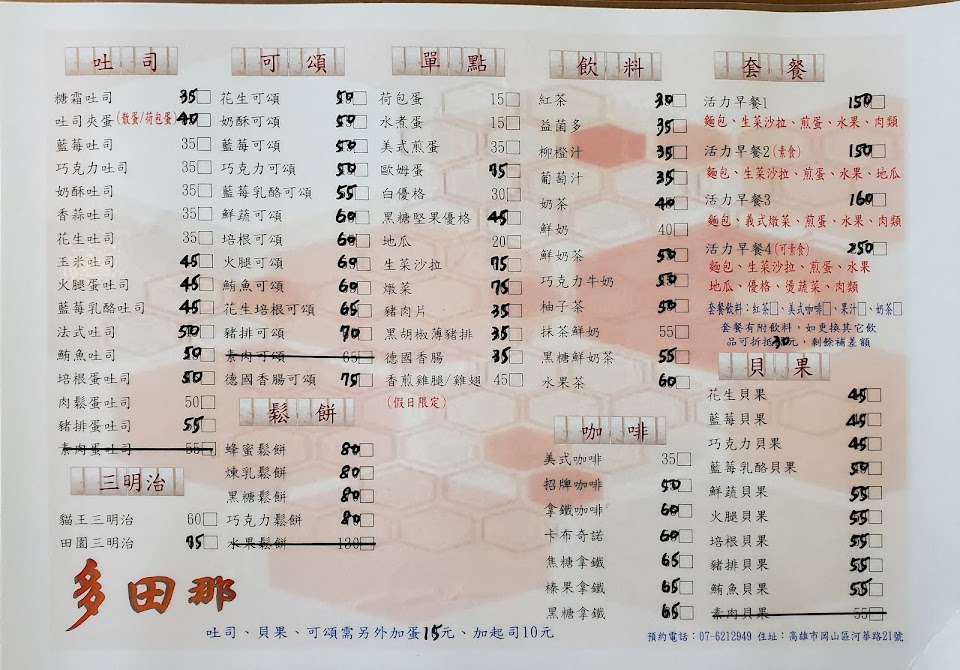 吐司
糖霜吐司 35
吐司夾蛋(散蛋/荷包蛋) 40
藍莓吐司 35
巧克力吐司 35
奶酥吐司 35
香蒜吐司 35
花生吐司 35
玉米吐司 45
火腿蛋吐司 45
藍莓乳酪吐司 45
法式吐司 50
鮪魚吐司 50
培根蛋吐司 50
肉鬆蛋吐司 50
豬排蛋吐司 55
素肉蛋吐司 55
三明治
貓王三明治 60
田園三明治 75
多田那
可頌
花生可頌 50
奶酥可頌 50
藍莓可頌 50
巧克力可頌 50
藍莓乳酪可頌 55
鮮蔬可頌 60
培根可頌 60
火腿可頌 60
鮪魚可頌 60
花生培根可頌 65
豬排可頌 70
素肉可頌 65
德國香腸可頌 75
鬆餅
蜂蜜鬆餅 80
煉乳鬆餅 80
黑糖鬆餅 80
巧克力鬆餅 80
水果鬆餅 130
單點
荷包蛋 15
水煮蛋 15
美式煎蛋 35
歐姆蛋 75
白優格 30
黑糖堅果優格 45
地瓜 20
生菜沙拉 75
燉菜 75
豬肉片 35
黑胡椒薄豬排 35
德國香腸 35
香煎雞腿/雞翅 45
(假日限定)
飲料
紅茶 30
益菌多 35
柳橙汁 35
葡萄汁 35
奶茶 40
鮮奶 40
鮮奶茶 50
巧克力牛奶 50
柚子茶 50
抹茶鮮奶 55
黑糖鮮奶茶 55
水果茶 60
咖啡
美式咖啡 35
招牌咖啡 50
拿鐵咖啡 60
卡布奇諾 60
焦糖拿鐵 65
榛果拿鐵 65
黑糖拿鐵 65
套餐
活力早餐1 150
麵包、生菜沙拉、煎蛋、水果、肉類
活力早餐2(素食) 150
麵包、生菜沙拉、煎蛋、水果、地瓜
活力早餐3 160
麵包、義式燉菜、煎蛋、水果、肉類
活力早餐4(可素食) 250
麵包、生菜沙拉、煎蛋、水果
地瓜、優格、燙蔬菜、肉類
套餐飲料:紅茶□、美式咖啡□、果汁□、奶茶□
套餐有附飲料,如更換其它飲
品可折抵30元,剩餘補差額
貝果
花生貝果 45
藍莓貝果 45
巧克力貝果 45
藍莓乳酪貝果 50
鮮蔬貝果 55
火腿貝果 55
培根貝果 55
豬排貝果 55
鮪魚貝果 55
素肉貝果 55
吐司、貝果、可頌需另外加蛋15元、加起司10元
預約電話:07-6212949 住址:高雄市岡山區河華路21號